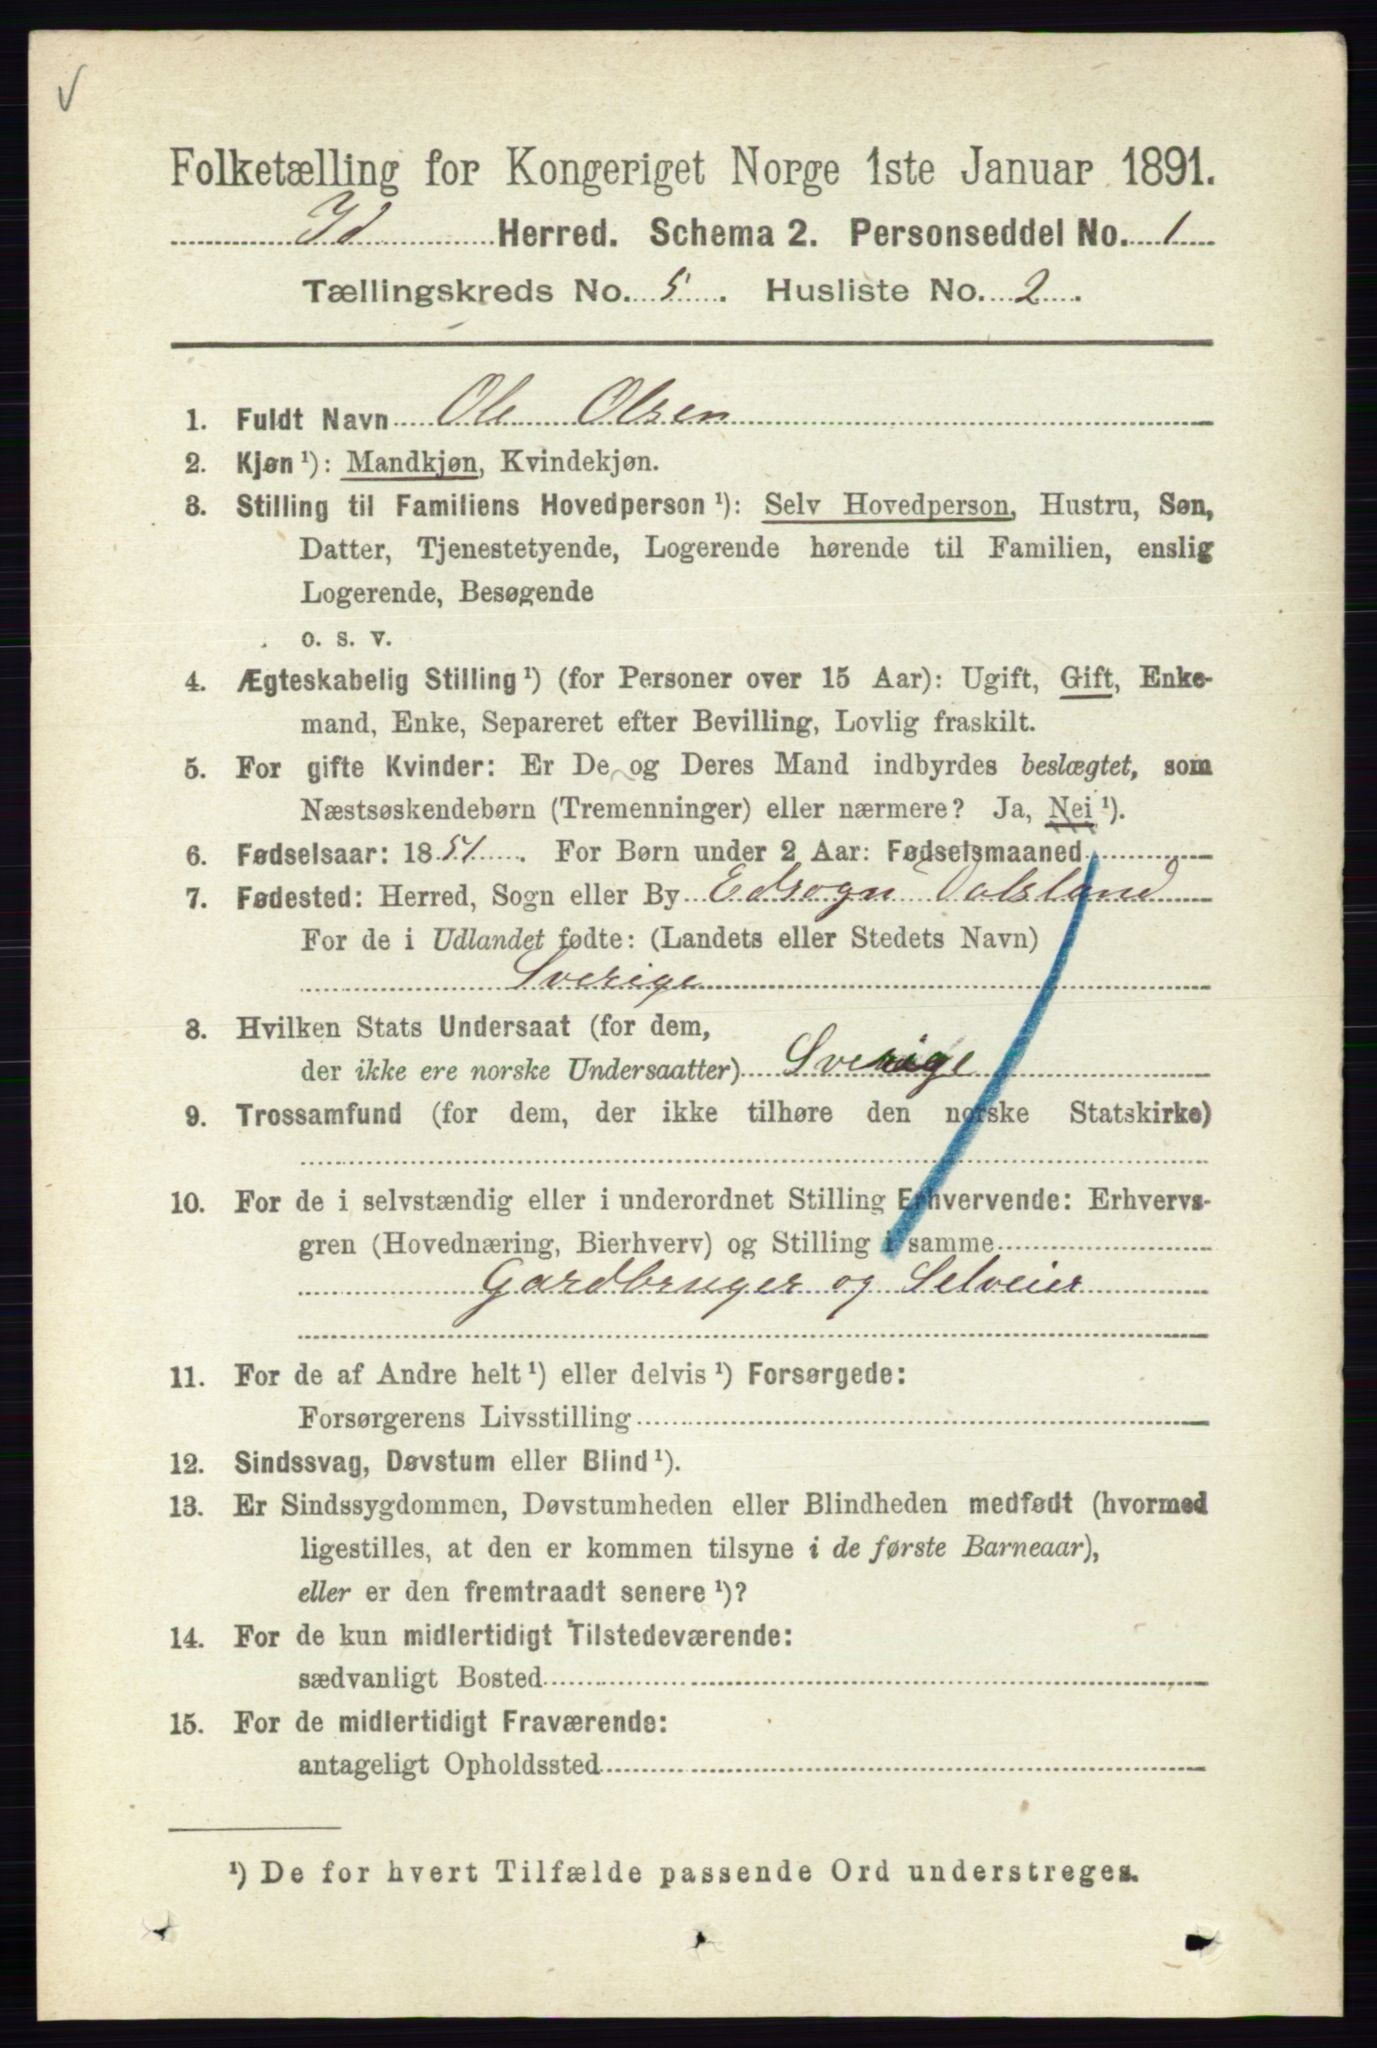 Folketælling for Kongeriget Norge 1ste Januar 1891.
Id Herred. Schema 2. Personseddel No. 1
Tællingskreds No. 5. Husliste No. 2.
1. Fuldt Navn Ole Olsen
2. Kjøn ¹): Mandkjøn, Kvindekjøn.
3. Stilling til Familiens Hovedperson ¹): Selv Hovedperson, Hustru, Søn,
Datter, Tjenestetyende, Logerende hørende til Familien, enslig
Logerende, Besøgende
o. s. v.
4. Ægteskabelig Stilling ¹) (for Personer over 15 Aar): Ugift, Gift, Enke-
mand, Enke, Separeret efter Bevilling, Lovlig fraskilt.
5. For gifte Kvinder: Er De og Deres Mand indbyrdes beslægtet, som
Næstsøskendebørn (Tremenninger) eller nærmere? Ja, Nei ¹).
6. Fødselsaar: 1851. For Børn under 2 Aar: Fødselsmaaned
7. Fødested: Herred, Sogn eller By Edsogn Dalsland
For de i Udlandet fødte: (Landets eller Stedets Navn)
Sverige
8. Hvilken Stats Undersaat (for dem,
der ikke ere norske Undersaatter) Sverige
9. Trossamfund (for dem, der ikke tilhøre den norske Statskirke)
10. For de i selvstændig eller i underordnet Stilling Erhvervende: Erhvervs-
gren (Hovednæring, Bierhverv) og Stilling i samme
Gardbruger og Selveier
11. For de af Andre helt ¹) eller delvis ¹) Forsørgede:
Forsørgerens Livsstilling
12. Sindssvag, Døvstum eller Blind ¹).
13. Er Sindssygdommen, Døvstumheden eller Blindheden medfødt (hvormed
ligestilles, at den er kommen tilsyne i de første Barneaar),
eller er den fremtraadt senere ¹)?
14. For de kun midlertidigt Tilstedeværende:
sædvanligt Bosted
15. For de midlertidigt Fraværende:
antageligt Opholdssted
¹) De for hvert Tilfælde passende Ord understreges.